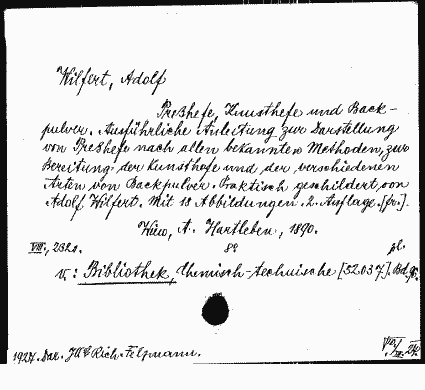 Wilfert, Adolf
Preßhefe, Kunsthefe und Back-
pulver. Ausführliche Anleitung zur Darstellung
von Preßhefe nach allen bekannten Methoden, zur
Bereitung der Kunsthefe und der verschiedenen
Arten von Backpulver. Praktisch geschildert von
Adolf Wilfert. Mit 18 Abbildungen. 2. Auflage.
Wien, A. Hartleben, 1890.
VIII, 232 s. 8º
v.: Bibliothek, Chemisch-technische [52.037]. Bd.
1927. Dar. Rich. Felpmann.